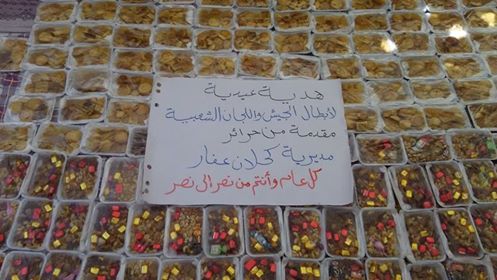 هدية عيدية
لأبطال الجيش واللجان الشعبية
مقدمة من حرائر
مديرية كحلان عفار
كل عام وأنتم من نصر الى نصر